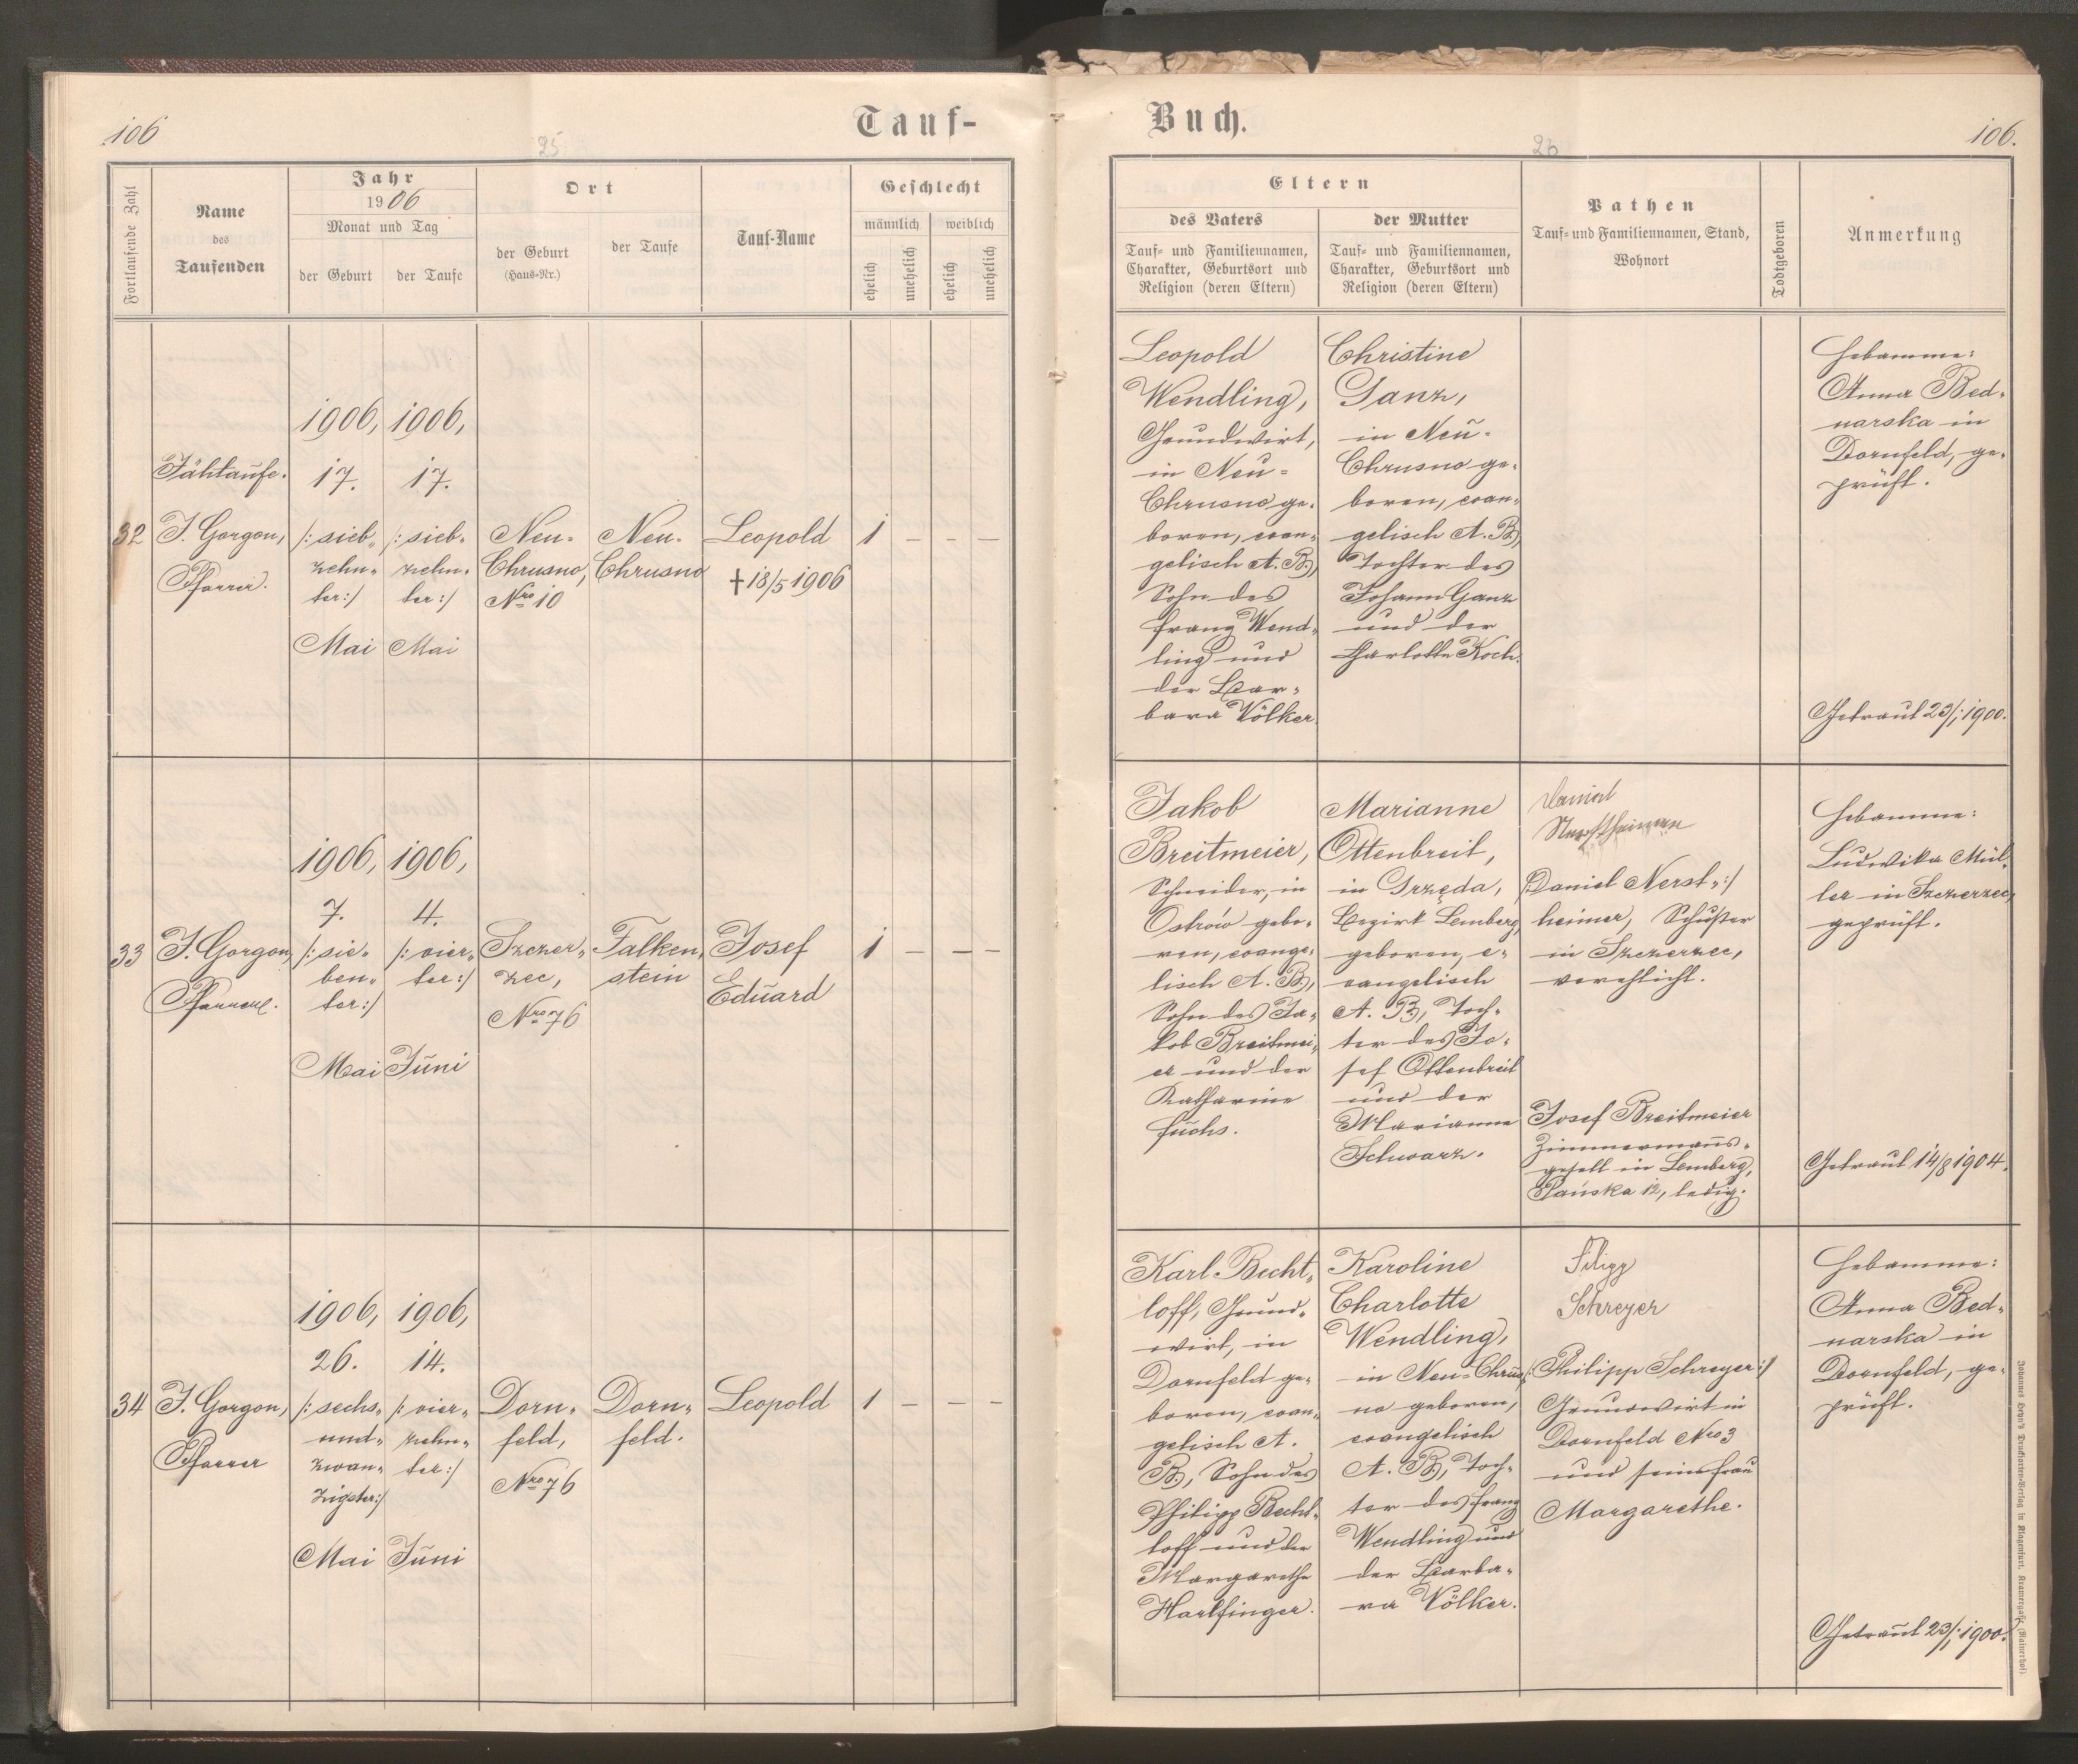 106
Tauf-
25
Fortlaufende Zahl
Name
des
Taufenden
Jahr
1906
Monat und Tag
der Geburt
der Taufe
Ort
der Geburt
(Haus-Nr.)
der Taufe
Tauf-Name
Geschlecht
männlich
weiblich
ehelich
unehelich
ehelich
unehelich
32
Jähtaufe.
J. Gorgon,
Pfarrer.
1906,
17.
/: sieb-
zehn-
ter:/
Mai
1906,
17.
/: sieb-
zehn-
ter:/
Mai
Neu-
Chrusno,
Nro 10
Neu-
Chrusno
Leopold
† 18/5 1906
1 – – –
33
J. Gorgon,
Pfarrer.
1906,
7.
/: sie-
ben-
ter:/
Mai
1906,
4.
/: vier-
ter:/
Juni
Szczer-
zec,
Nro 76
Falken-
stein
Josef
Eduard
1 – – –
34
J. Gorgon,
Pfarrer
1906,
26.
/: sechs-
und-
zwan-
zigster:/
Mai
1906,
14.
/: vier-
zehn-
ter:/
Juni
Dorn-
feld,
Nro 76
Dorn-
feld.
Leopold
1 – – –
Buch.
106.
26
Eltern
des Vaters
Tauf- und Familiennamen,
Charakter, Geburtsort und
Religion (deren Eltern)
der Mutter
Tauf- und Familiennamen,
Charakter, Geburtsort und
Religion (deren Eltern)
Pathen
Tauf- und Familiennamen, Stand,
Wohnort
Todtgeboren
Anmerkung
Leopold
Wendling,
Grundwirt,
in Neu-
Chrusno ge-
boren, evan-
gelisch A. B.,
Sohn des
Franz Wend-
ling und
der Bar-
bara Völker.
Christine
Ganz,
in Neu-
Chrusno ge-
boren, evan-
gelisch A. B.,
Tochter des
Johann Ganz
und der
Charlotte Koch.
Hebamme:
Anna Bed-
narska in
Dornfeld, ge-
prüft.
Getraut 23/1 1900.
Jakob
Breitmeier,
Schneider, in
Ostrów gebo-
ren, evange-
lisch A. B.,
Sohn des Ja-
kob Breitmei-
er und der
Katharine
Fuchs.
Marianne
Ottenbreit,
in Grzęda,
Bezirk Lemberg,
geboren, e-
vangelisch
A. B., Toch-
ter des Jo-
sef Ottenbreit
und der
Marianne
Schwarz.
Daniel
Nerstheimer
/: Daniel Nerst-:/
heimer, Schuster
in Szczerzec,
verehlicht.
Josef Breitmeier
Zimmermanns-
gesell in Lemberg,
12, ledig.
Hebamme:
Ludwika Mül-
ler in Szczerzec,
geprüft.
Getraut 14/8 1904.
Karl Becht-
loff, Grund-
wirt, in
Dornfeld ge-
boren, evan-
gelisch A.
B., Sohn des
Philipp Becht-
loff und der
Margarethe
Harlfinger.
Karoline
Charlotte
Wendling,
in Neu-Chrus-
no geboren,
evangelisch
A. B., Toch-
ter des Franz
Wendling und
der Barba-
ra Völker.
Filipp
Schreyer
/: Philipp Schreyer:/
Grundwirt in
Dornfeld Nro 3
und seine Frau
Margarethe.
Hebamme:
Anna Bed-
narska in
Dornfeld, ge-
prüft.
Getraut 23/1 1900.
Johannes Heyn's Drucksorten-Verlag in Klagenfurt, Kramergasse (Rainerhof)